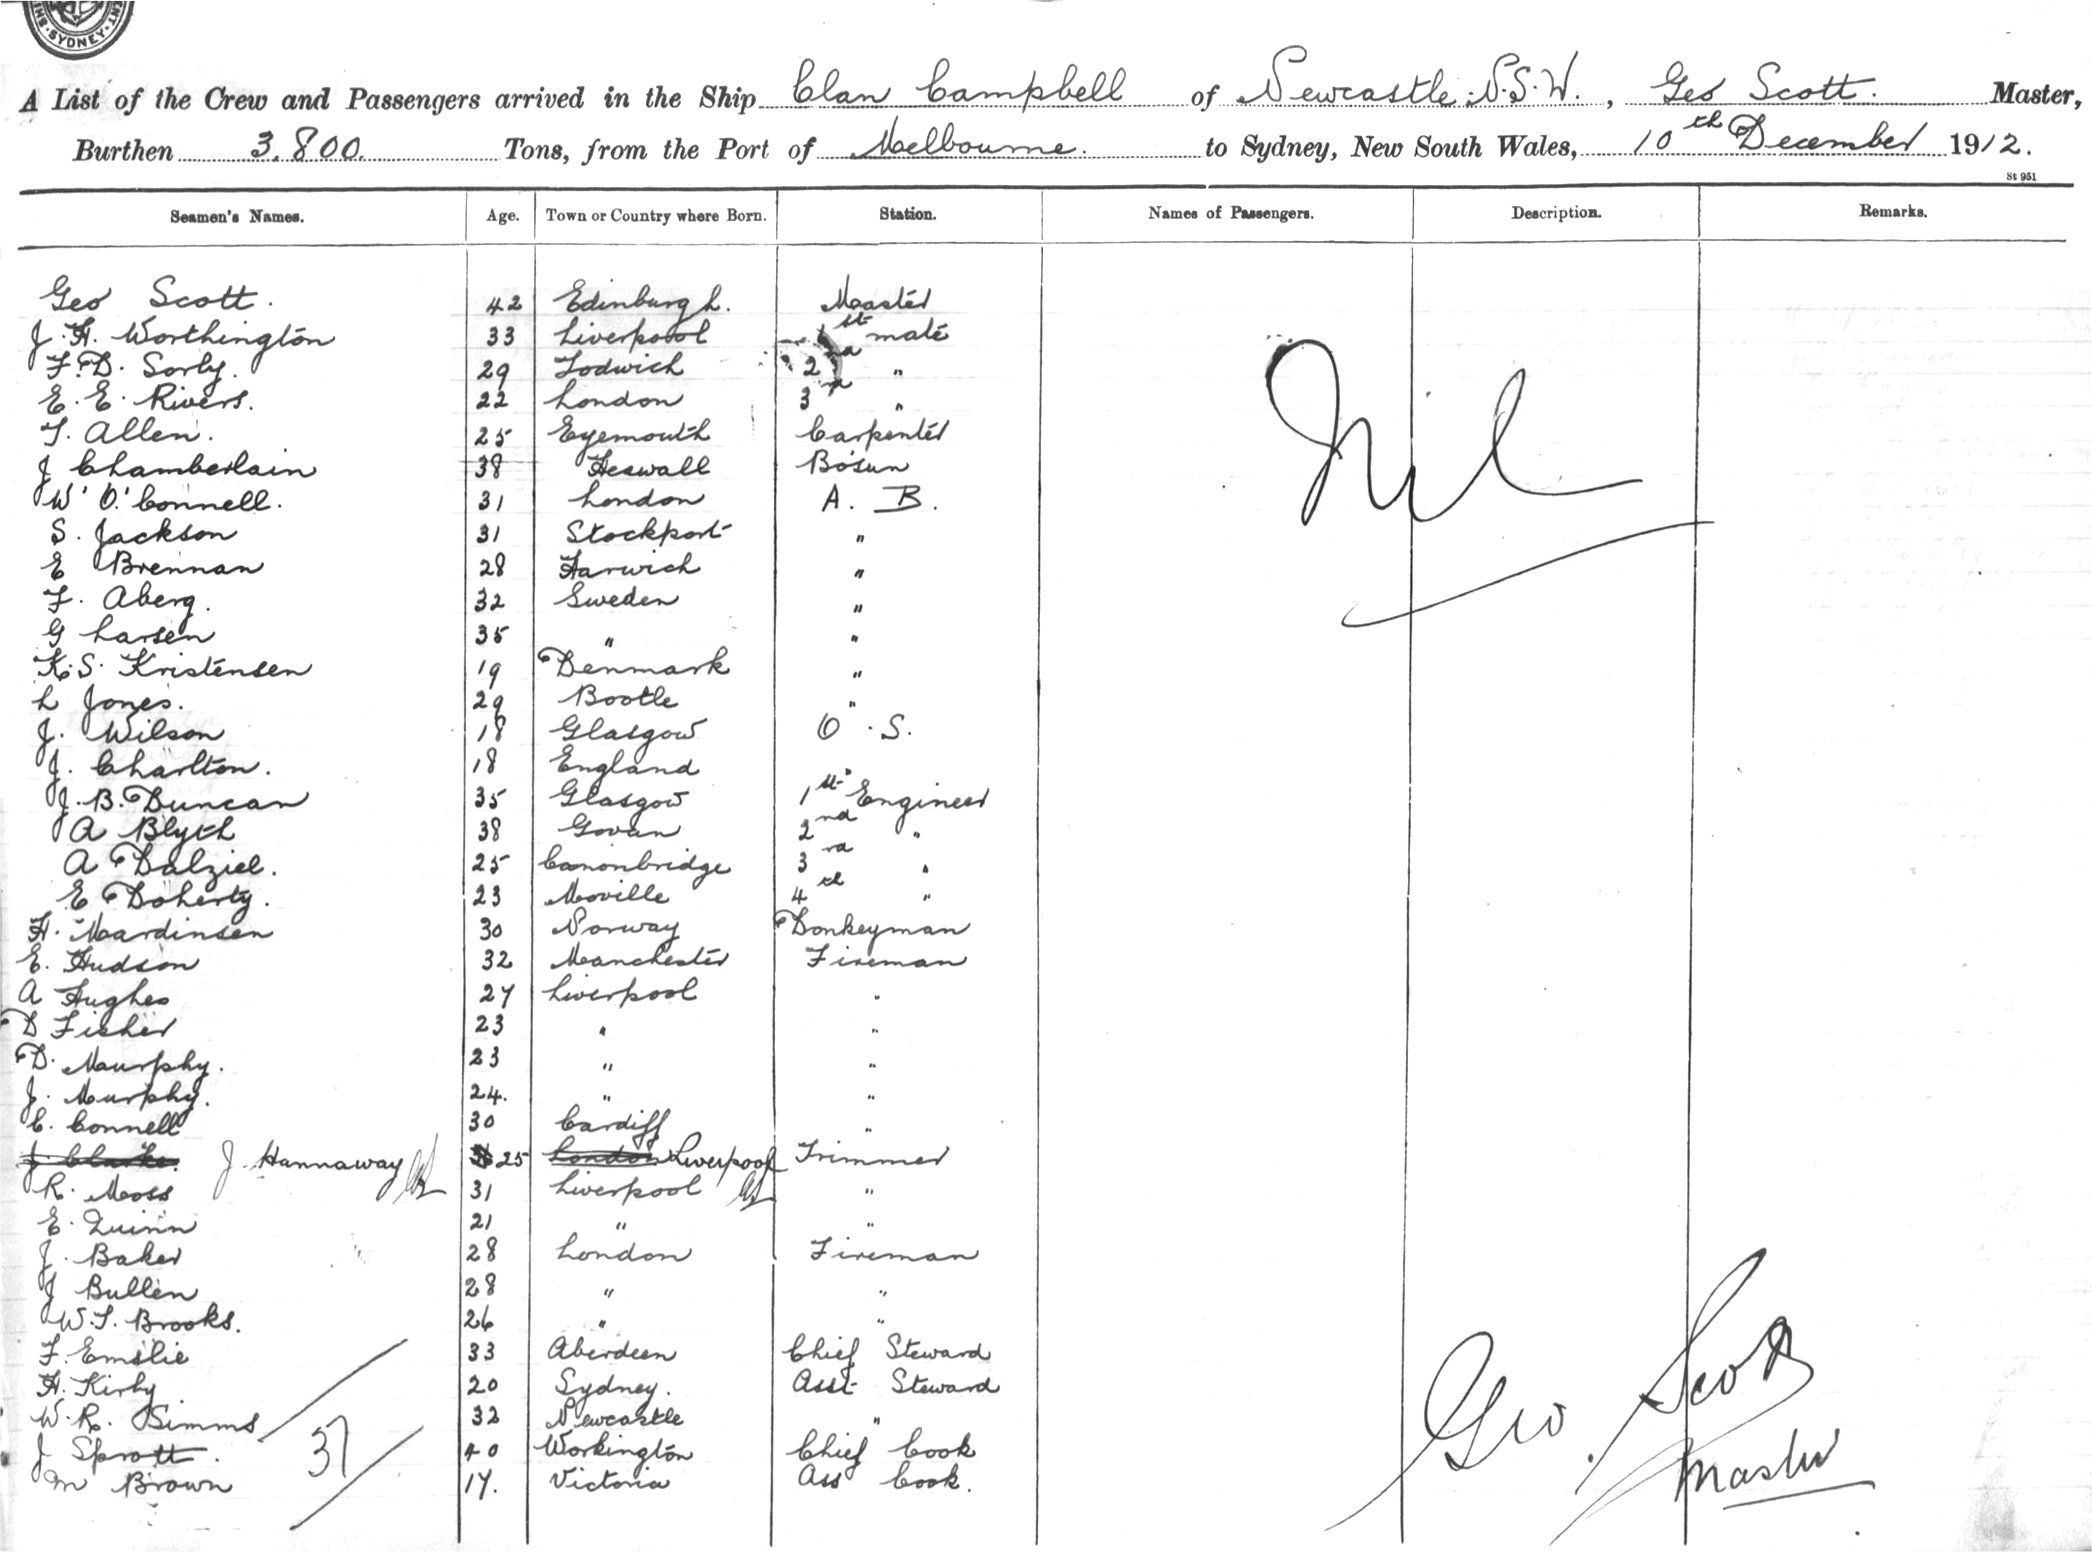 SYDNEY
A List of the Crew and Passengers arrived in the Ship Clan Campbell of Newcastle. N.S.W., Geo Scott. Master,
Burthen 3.800. Tons, from the Port of Melbourne. to Sydney, New South Wales, 10th December 1912.
St 951
Seamen's Names. Age. Town or Country where Born. Station. Names of Passengers. Description. Remarks.
Geo Scott. 42 Edinburgh. Master
J. H. Worthington 33 Liverpool 1st mate
F. D. Sorby. 29 Todwich 2nd "
E. E. Rivers. 22 London 3 "
T. Allen. 25 Eyemouth Carpenter
J Chamberlain 38 Heswall Bosun
W. O'Connell. 31 London A. B.
Nil
S. Jackson 31 Stockport "
E Brennan 28 Harwich "
F. Aberg. 32 Sweden "
G Larsen 35 " "
K. S. Kristensen 19 Denmark "
L Jones. 29 Bootle "
J. Wilson 18 Glasgow O.S.
J. Charlton. 18 England "
J. B. Duncan 35 Glasgow 1st Engineer
A Blyth 38 Govan 2nd "
A Dalziel. 25 Canonbridge 3rd "
E Doherty. 23 Moville 4th "
H. Mardinsen 30 Norway Donkeyman
E. Hudson 32 Manchester Fireman
A Hughes 27 Liverpool "
D Fisher 23 " "
D. Murphy. 23 " "
J. Murphy. 24. " "
C. Connell 30 Cardiff "
J. Clarke. J Hannaway 25 London Liverpool Trimmer
R. Moss 31 Liverpool "
E. Quinn 21 " "
J. Baker 28 London Fireman
J Bullen 28 " "
W. T. Brooks. 26 " "
F. Emslie 33 Aberdeen Chief Steward
H. Kirby 20 Sydney. Asst Steward
W. R. Simms 32 Newcastle "
J Sprott. 40 Workington Chief Cook
M Brown 17. Victoria Ass Cook.
37
Geo. Scott
Master